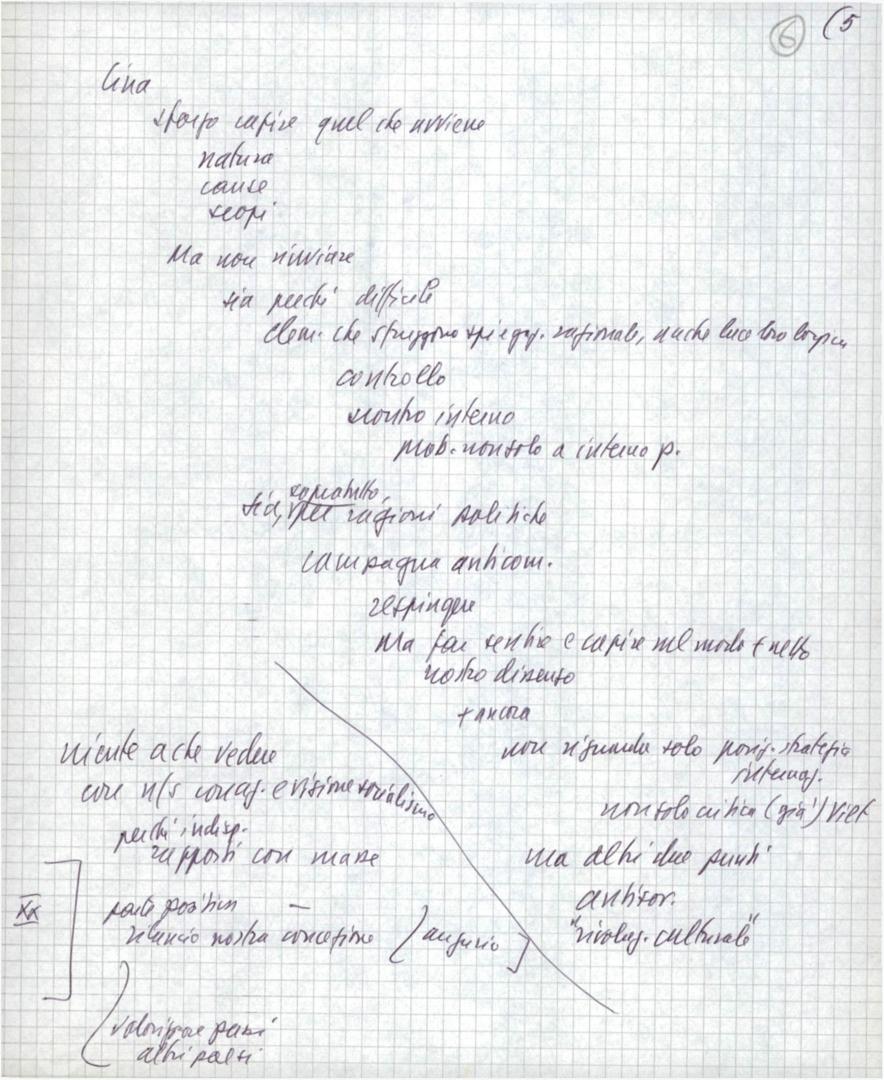 6 (5
Cina
sforzo capire quel che avviene
natura
cause
scopi
Ma non rinviare
sia perché difficile
elem. che sfuggono spiegaz. razionale, anche luce loro logica
controllo
scontro interno
mob. non solo a interno p.
soprattutto,
sia, per ragioni politiche
campagna anticom.
respingere
Ma far sentire e capire nel modo + netto
nostro dissenso
+ ancora
non riguarda solo posiz. strategia
internaz.
non solo critica (già) Viet
ma altri due punti
antisov.
"rivoluz. culturale"
niente a che vedere
con n/s concez. e visione socialismo
perché indisp.
rapporti con masse
XX
parte positiva —
rilancio nostra concezione (augurio ]
valorizzare passi
altri paesi